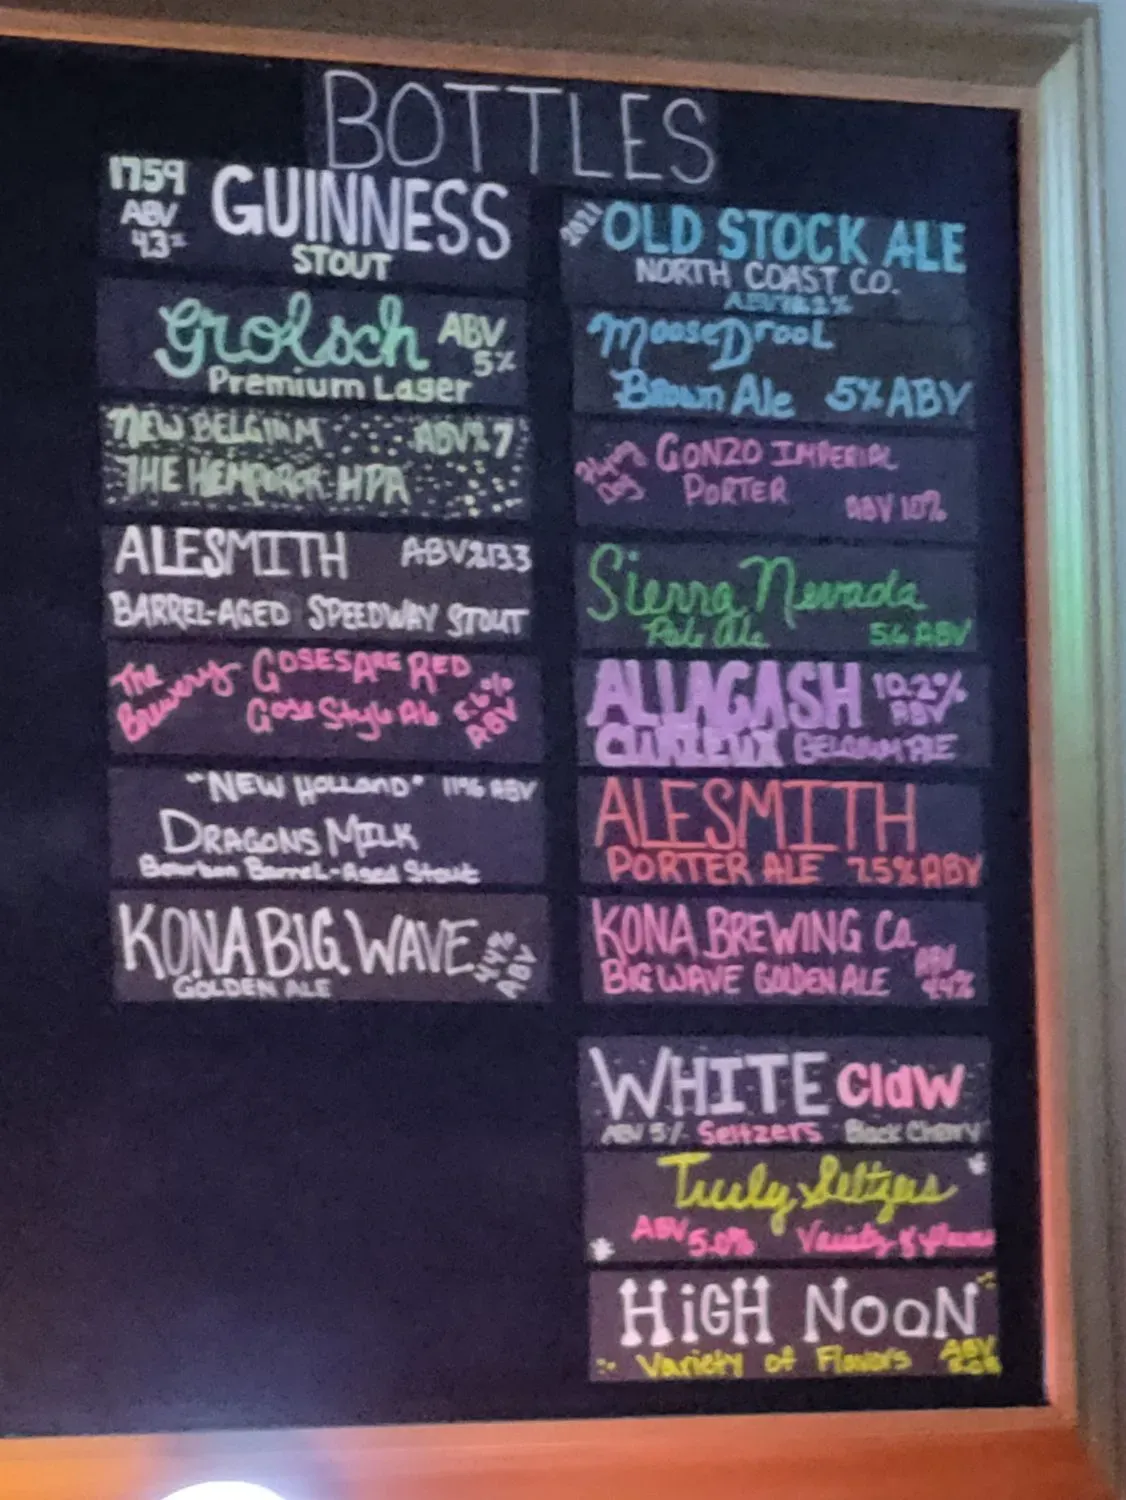 BOTTLES
1759
ABV
4.3%
GUINNESS
STOUT
Grolsch
ABV
5%
Premium Lager
NEW BELGIUM
ABV% 7
THE HEMPEROR HPA
ALESMITH
ABV%
BARREL-AGED SPEEDWAY STOUT
The
Brewery
GOSES ARE RED
Gose Style Ale
5.6%
ABV
"NEW HOLLAND" 11% ABV
DRAGONS MILK
Bourbon Barrel-Aged Stout
KONA BIG WAVE
GOLDEN ALE
4.4%
ABV
2021
OLD STOCK ALE
NORTH COAST CO.
Moose Drool
Brown Ale 5% ABV
Flying
Dog
GONZO IMPERIAL
PORTER
ABV 10%
Sierra Nevada
Pale Ale
5.6 ABV
ALLAGASH
10.2%
ABV
CURIEUX BELGIUM ALE
ALESMITH
PORTER ALE 7.5% ABV
KONA BREWING Co.
BIG WAVE GOLDEN ALE
ABV
4.4%
WHITE Claw
ABV 5% Seltzers Black Cherry
Truly Seltzers
ABV 5.0% Variety of flavors
HiGH NOON
Variety of Flavors
ABV